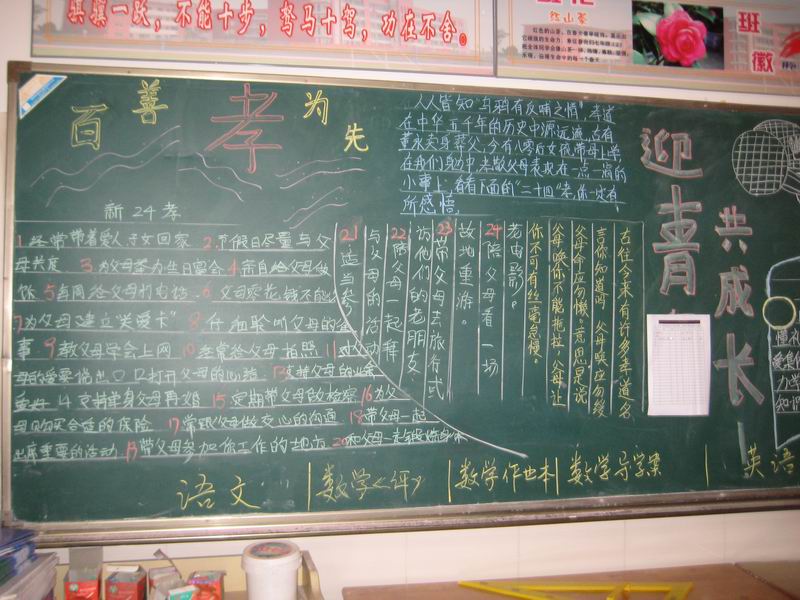 骐骥一跃，不能十步，驽马十驾，功在不舍。
红山茶
班徽
百善孝为先
人人皆知"乌鸦有反哺之情"，孝道
在中华五千年的历史中源远流
董永卖身葬父，今有八零后女孩带母上学，
在我们身边，孝敬父母表现在一点一滴的
小事上，看看下面的"二十四"孝，你一定有
所感悟。
新24孝
1经常带着爱人、子女回家 2节假日尽量与父
母共度 3为父母举办生日宴会 4亲自给父母做
饭 5每周给父母打电话 6父母零花钱不能少
7为父母建立"关爱卡" 8仔细聆听父母的往
事 9教父母学会上网 10经常给父母拍照 11对父
母的爱要说出口 12打开父母的心结 13支持父母的业余
爱好 14支持单身父母再婚 15定期带父母做检查 16为父
母购买合适的保险 17常跟父母做交心的沟通 18带父母一起
出席重要的活动 19带父母参加你工作的地方 20和父母一起锻炼身体
21适当参
与父母的活动
22陪父母一起拜
访他们的老朋友
23带父母去旅行或
故地重游。
24陪父母看一场
老电影。
古往今来有许多孝道名
言你知道吗 父母唤应勿缓
父母命应勿懒，意思是说
父母唤你不能拖拉，父母让
你不可有丝毫怠慢。
迎青
共成长
语文
数学《评》
数学作业本
数学导学案
英语